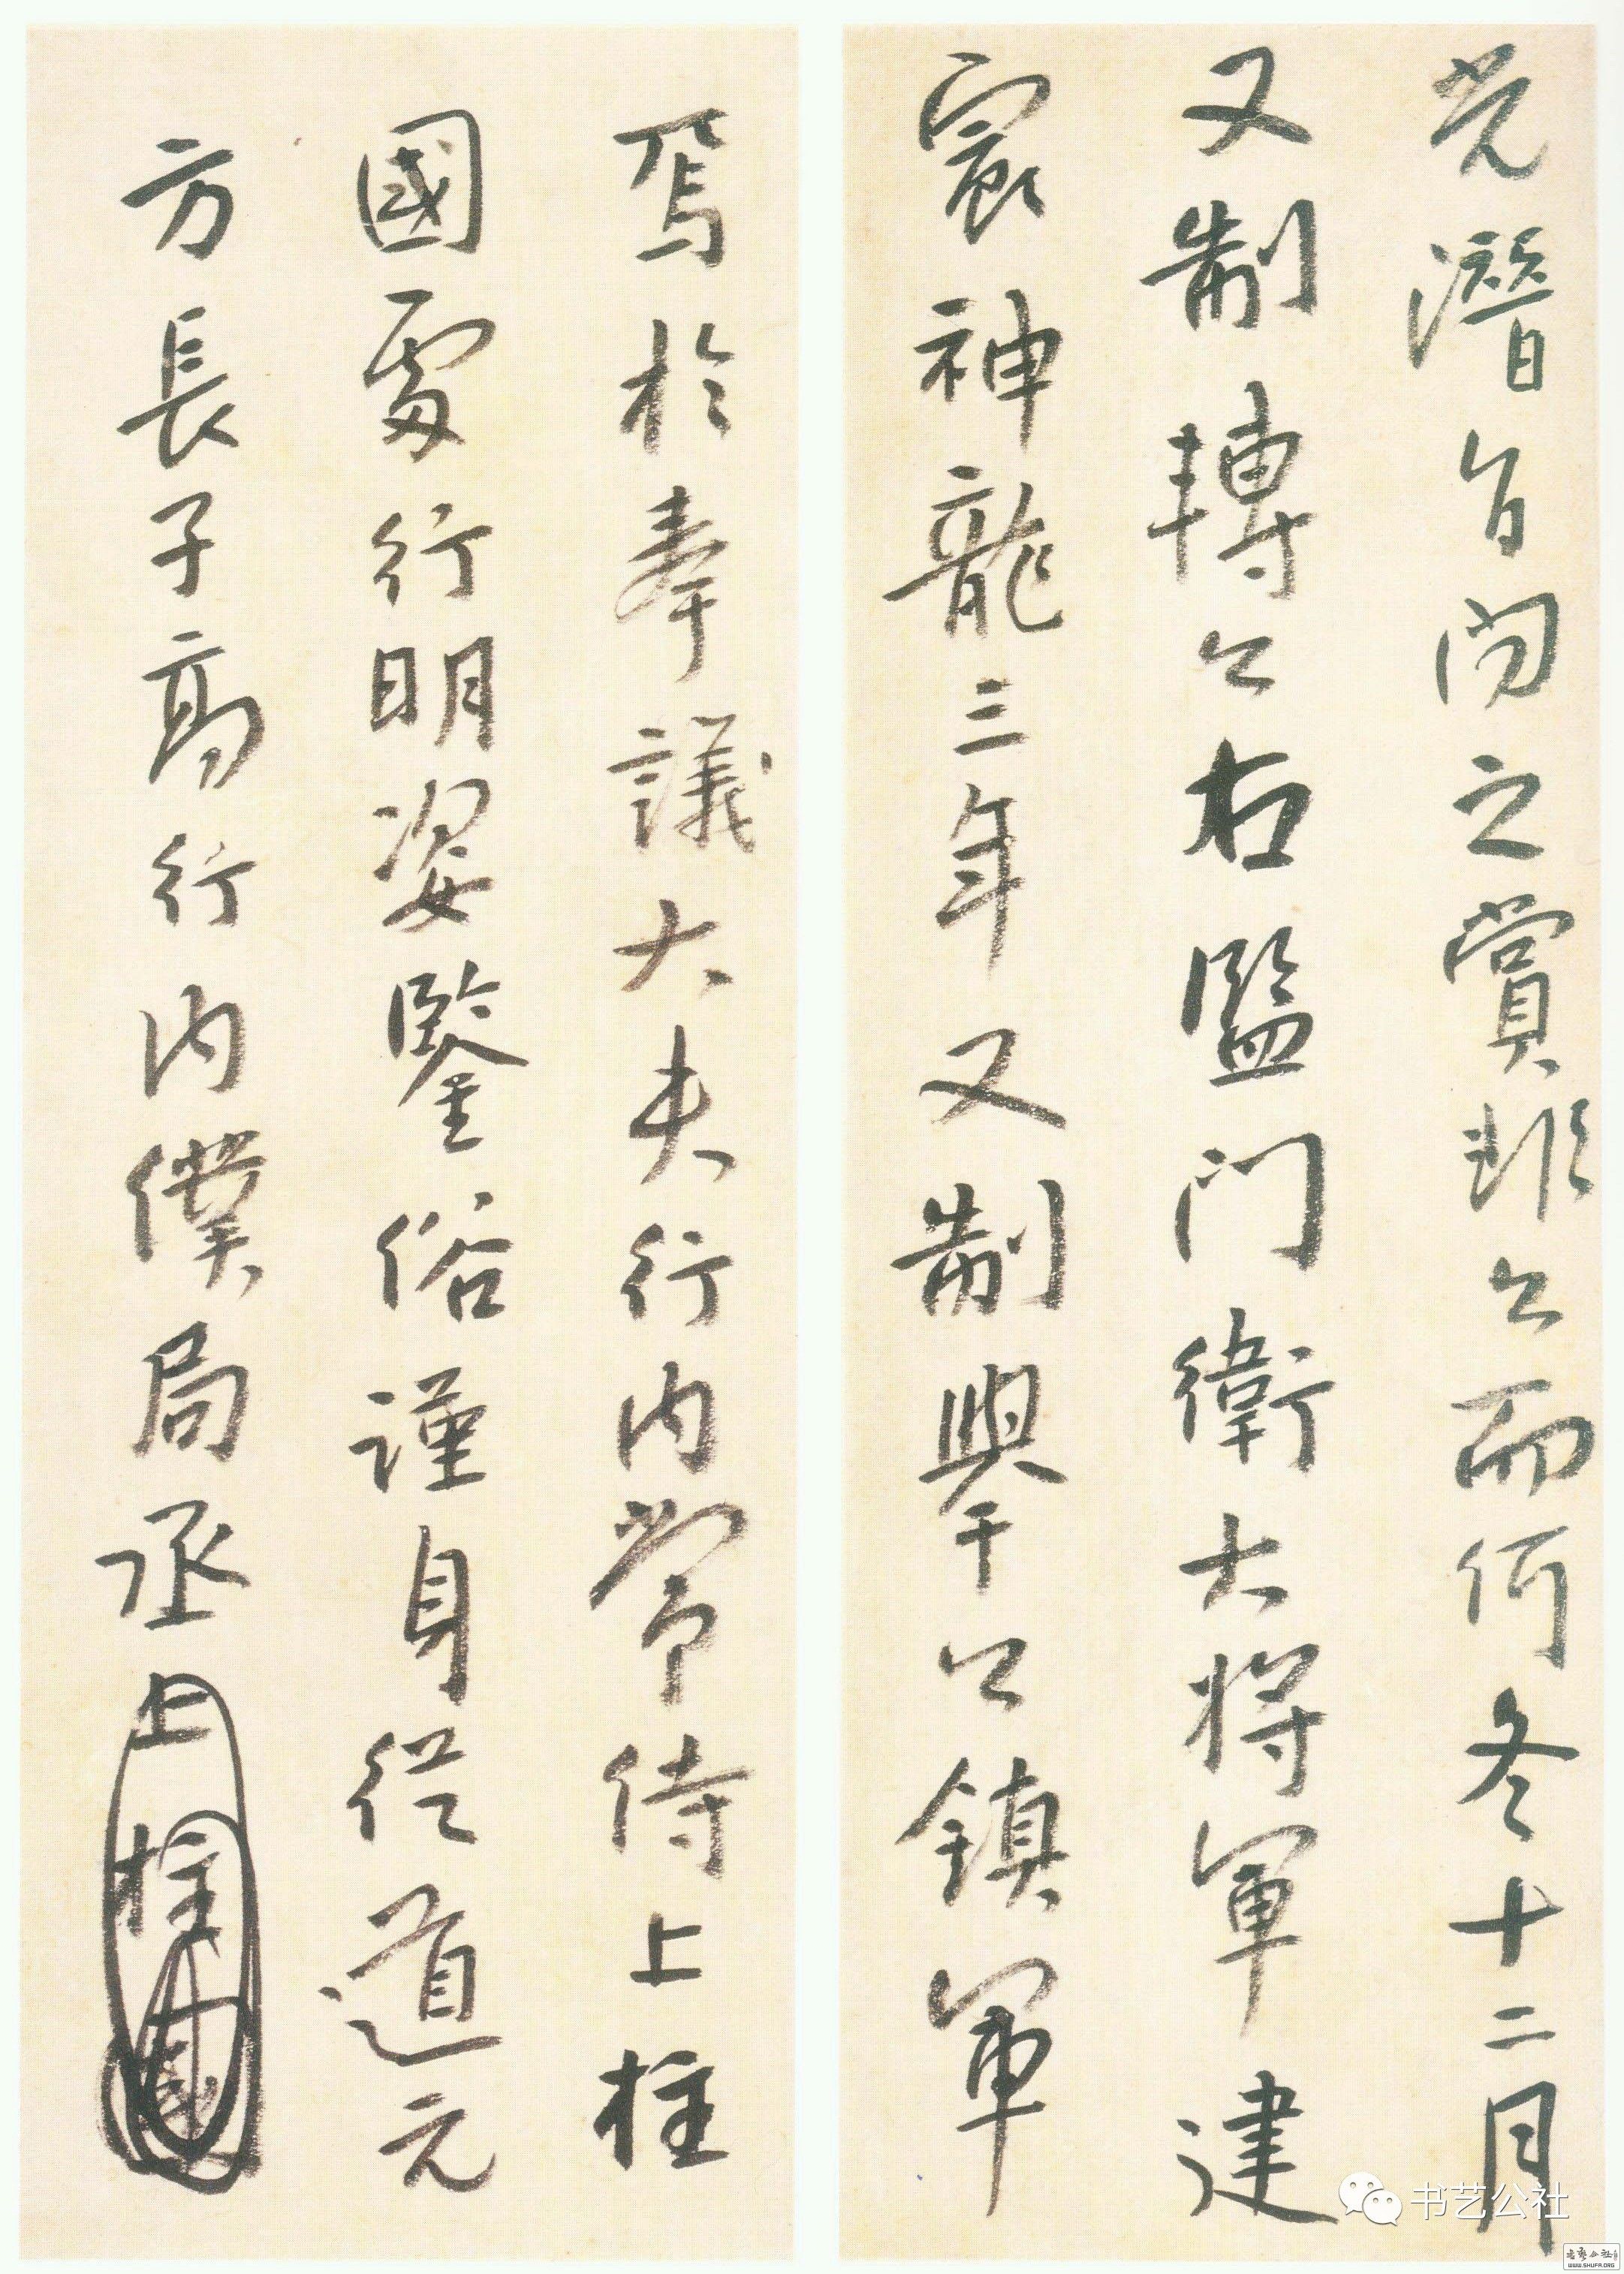 光潛旨問之賞非公而何冬十二月
又制轉公右監門衛大將軍建
宸神龍三年又制舉公鎮軍
焉於奉議大夫行內常侍上柱
國處行明姿鑒俗謹身從道元
方長子高行內僕局丞上柱國
书艺公社
WWW.SHUFA.ORG